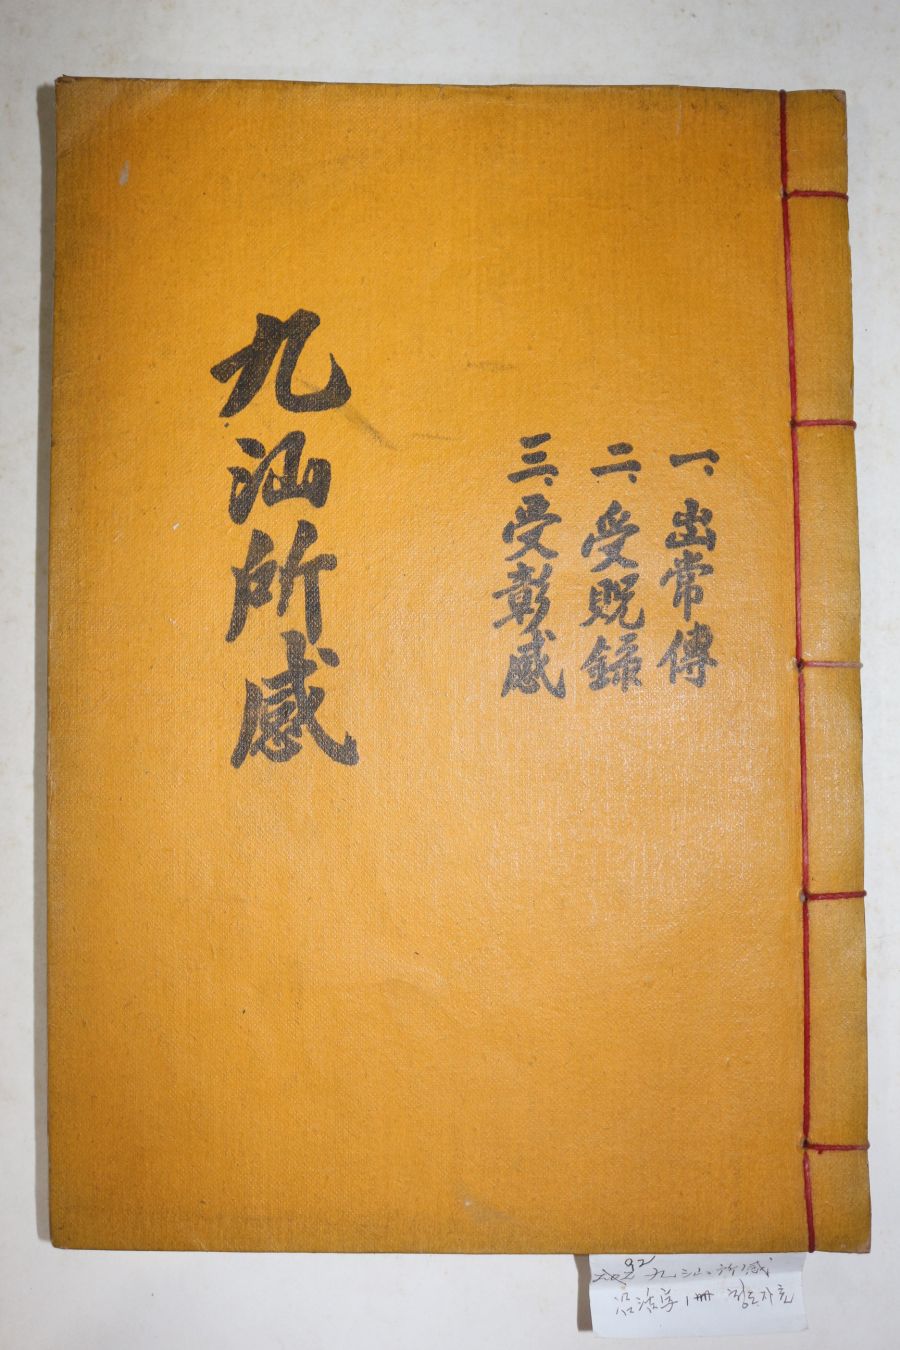 一、出常傳
二、受貺録
三、受彰感
九汕所感
92
九汕所感
1冊